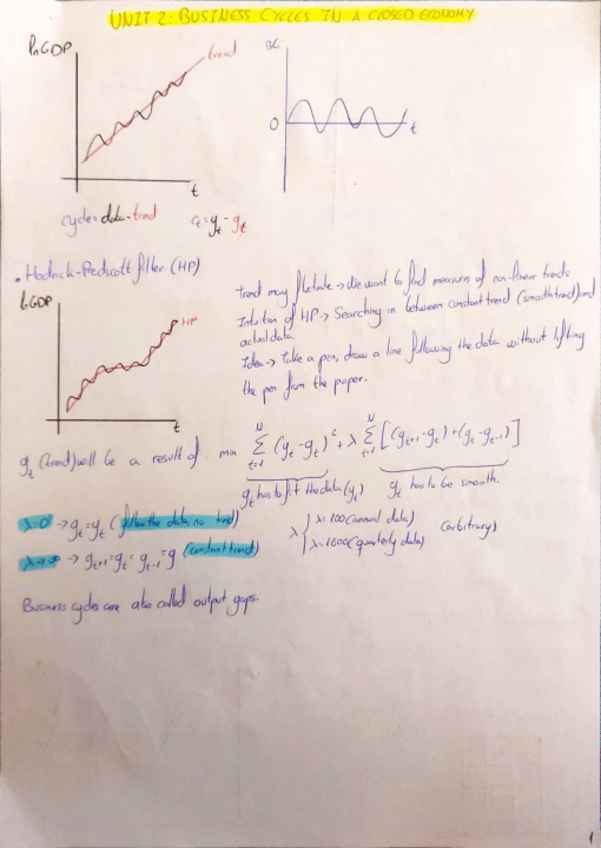 UNIT 2: BUSINESS CYCLES IN A CLOSED ECONOMY
lnGDP
trend
t
BC
0
t
cycle = data - trend
cₜ = yₜ - gₜ
• Hodrick-Prescott filter (HP)
lnGDP
HP
t
Trend may fluctuate → We want to find measures of non-linear trends
Intuition of HP → Searching in between constant trend (smooth trend) and
actual data.
Idea → Take a pen, draw a line following the data without lifting
the pen from the paper.
gₜ (trend) will be a result of min Σ_{t=1}^{N} (yₜ - gₜ)² + λ Σ_{t=1}^{N} [(gₜ₊₁ - gₜ) + (gₜ - gₜ₋₁)]
gₜ has to fit the data (yₜ)
gₜ has to be smooth.
λ=0 → gₜ = yₜ (follow the data, no trend)
λ→∞ → gₜ₊₁ = gₜ = gₜ₋₁ = g (constant trend)
λ { λ=100 (annual data)
λ=1600 (quarterly data)
(arbitrary)
Business cycles are also called output gaps.
1